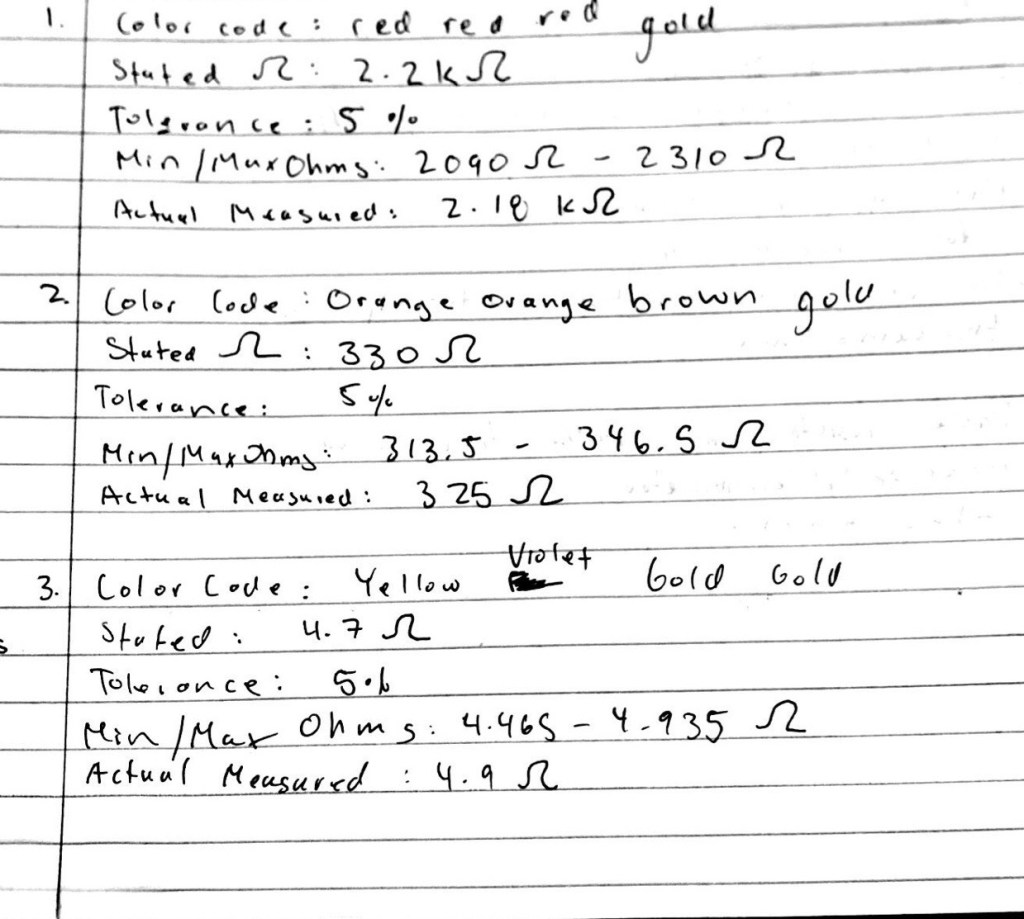 1. Color code : red red red gold
Stated Ω : 2.2 kΩ
Tolerance : 5 %
Min/Max Ohms : 2090 Ω - 2310 Ω
Actual Measured : 2.18 kΩ
2. Color Code : Orange orange brown gold
Stated Ω : 330 Ω
Tolerance : 5 %
Min/Max Ohms : 313.5 - 346.5 Ω
Actual Measured : 325 Ω
3. Color Code : Yellow Violet Gold Gold
Stated : 4.7 Ω
Tolerance : 5 %
Min/Max Ohms : 4.465 - 4.935 Ω
Actual Measured : 4.9 Ω